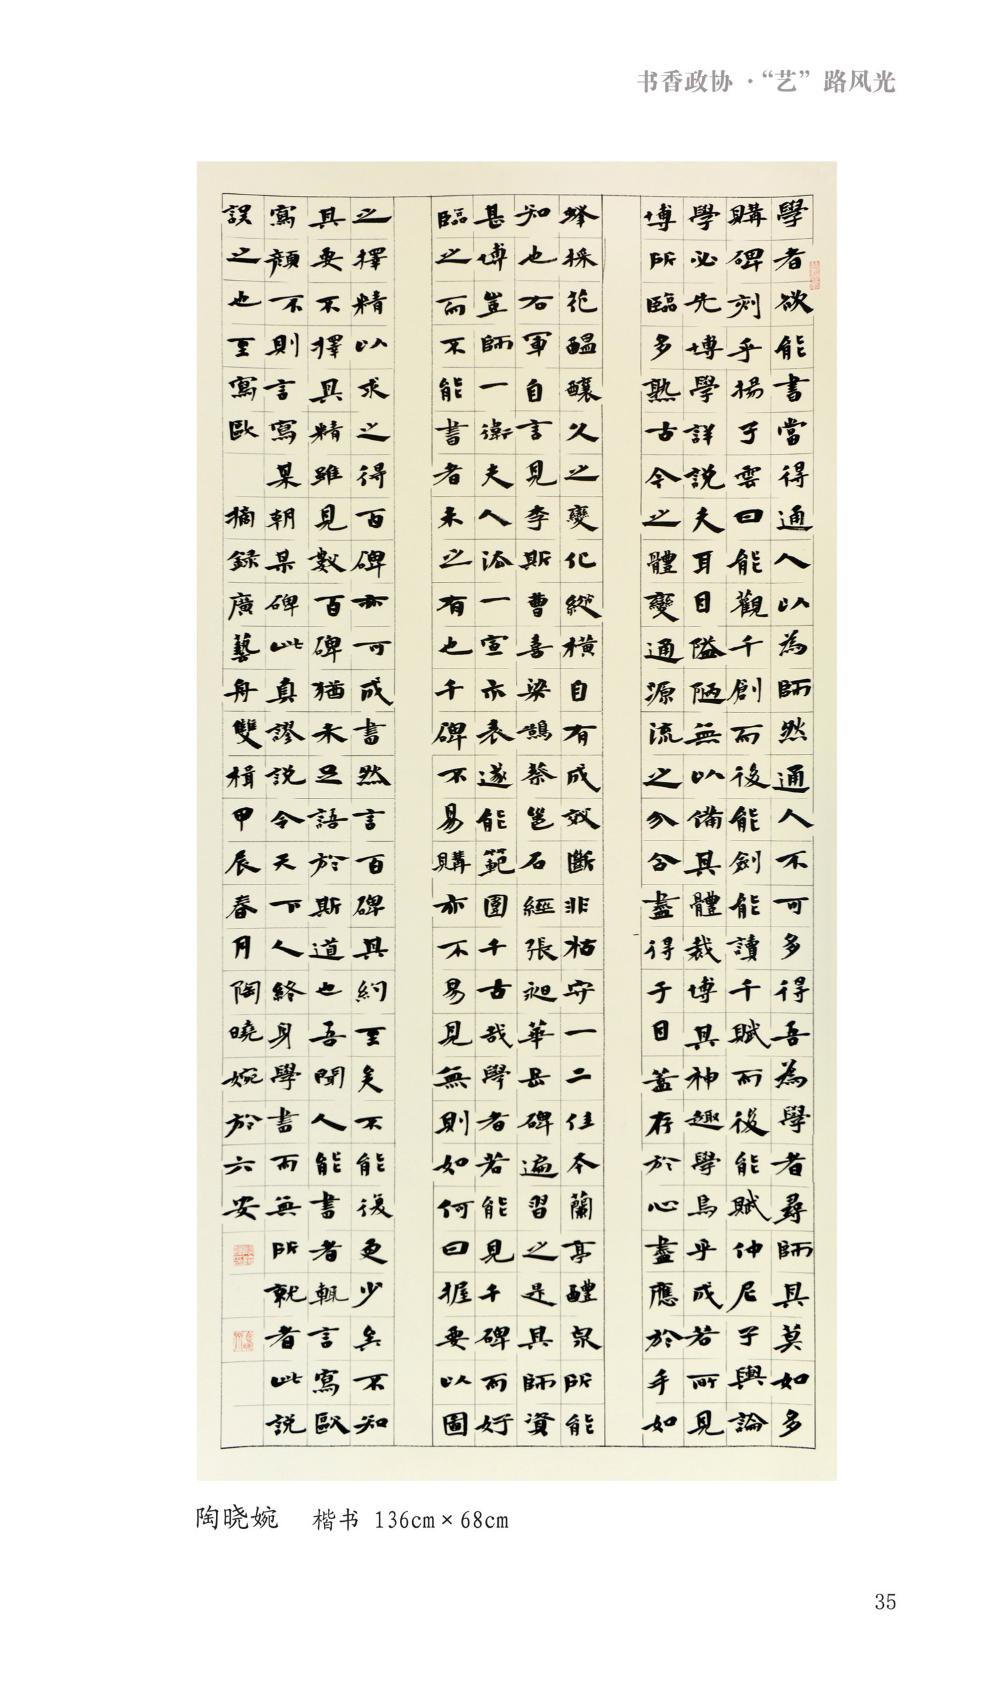 书香政协·“艺”路风光
學者欲能書當得通人以為師然通人不可多得吾為學者尋師其莫如多
購碑刻乎揚子雲曰能觀千創而後能劍能讀千賦而後能賦仲尼子與論
學必先博學詳說夫耳目隘陋無以備其體裁博其神趣學烏乎成若所見
博所臨多熟古今之體變通源流之分合盡得于目蓋存於心盡應於手如
蜂採花醞釀久之變化縱橫自有成效斷非枯守一二佳本蘭亭醴泉所能
知也右軍自言見李斯曹喜梁鵠蔡邕石經張昶華岳碑遍習之是其師資
甚博豈師一衛夫人添一宣示表遂能範圍千古哉學者若能見千碑而好
臨之而不能書者未之有也千碑不易購亦不易見無則如何曰握要以圖
之擇精以求之得百碑亦可成書然言百碑其約至矣不能復更少矣不知
其要不擇其精雖見數百碑猶未足語於斯道也吾聞人能書者輒言寫歐
寫顏不則言寫某朝某碑此真謬說令天下人終身學書而無所就者此說
誤之也至寫歐 摘錄廣藝舟雙楫甲辰春月陶曉婉於六安
陶晓婉 楷书 136cm×68cm
35